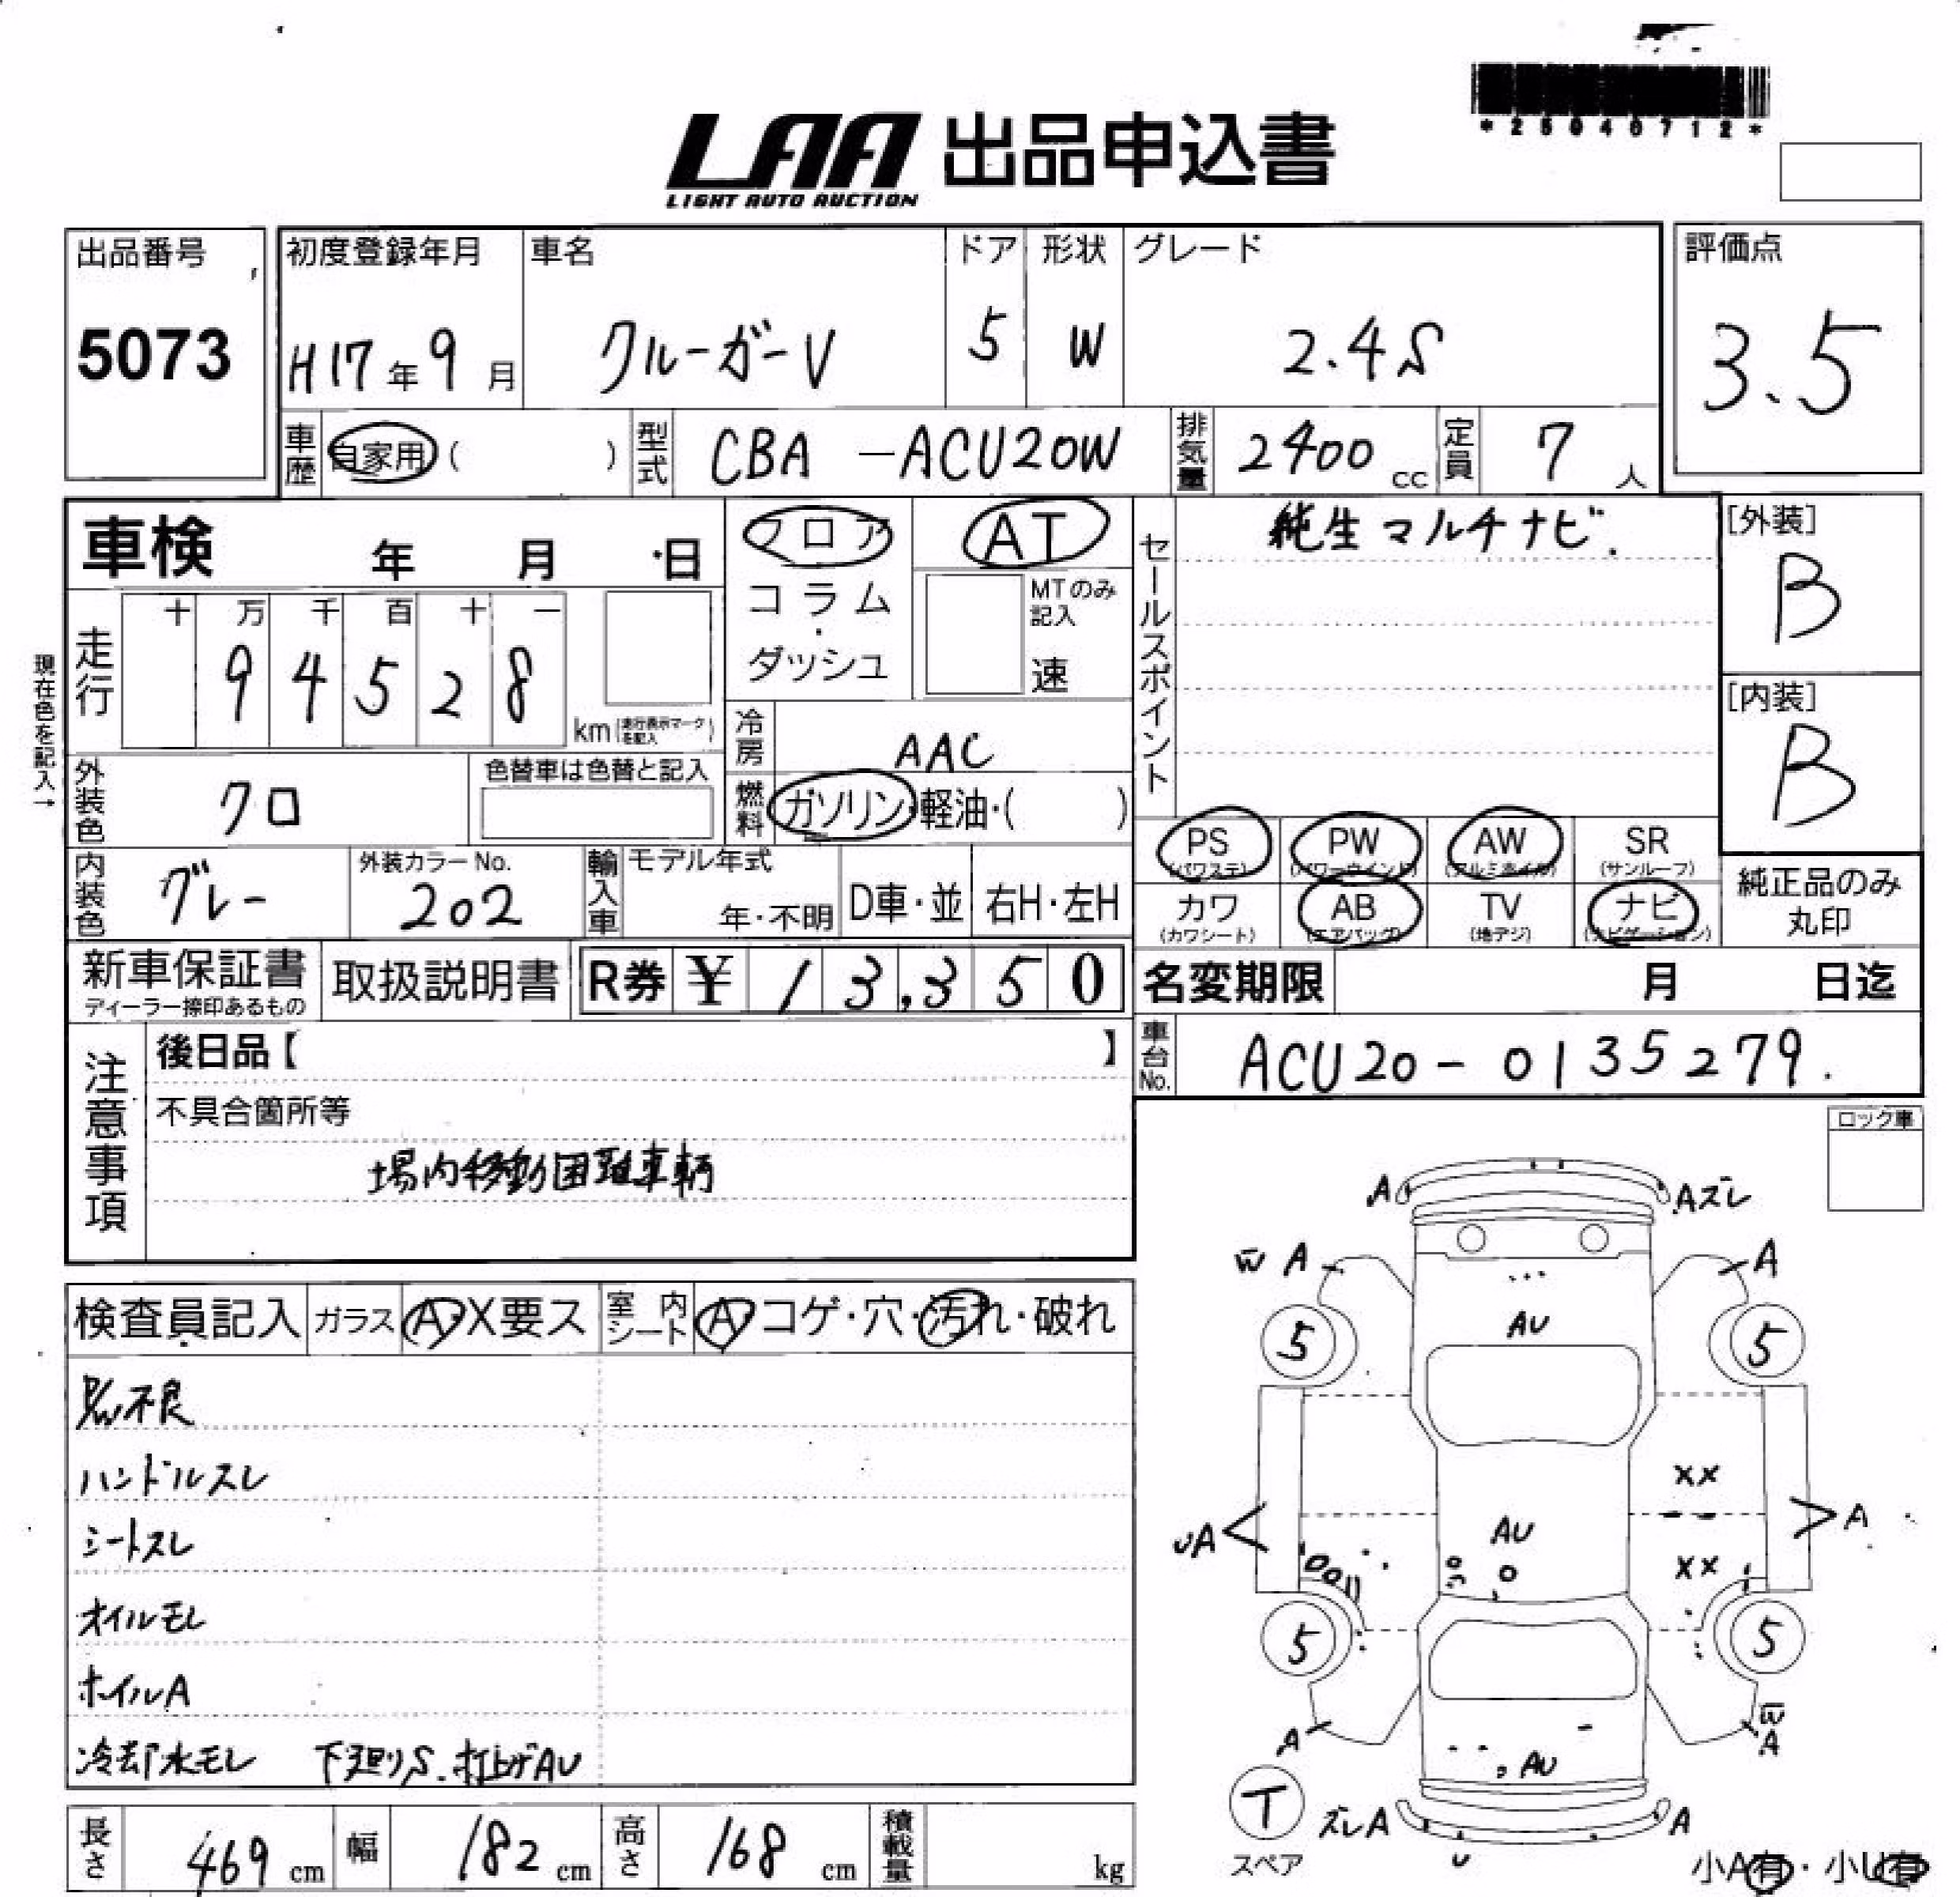 *25040712*
LAA 出品申込書
LIGHT AUTO AUCTION
出品番号
5073
初度登録年月
H17年9月
車名
クルーガーV
ドア
5
形状
W
グレード
2.4S
評価点
3.5
車歴 自家用( )
型式 CBA-ACU20W
排気量 2400cc
定員 7人
車検 年 月 日
フロア
コラム
・
ダッシュ
AT
MTのみ
記入
速
セールスポイント
純生マルチナビ.
[外装]
B
[内装]
B
現在色を記入→
走行
十 万 千 百 十 一
9 4 5 2 8
km(走行表示マークを記入)
冷房 AAC
外装色 クロ
色替車は色替と記入
燃料 ガソリン・軽油・( )
PS PW AW SR
(パワステ) (パワーウインド) (アルミホイル) (サンルーフ)
カワ AB TV ナビ
(カワシート) (エアバッグ) (地デジ) (ナビゲーション)
純正品のみ
丸印
内装色 グレー
外装カラーNo.
202
輸入車
モデル年式
年・不明
D車・並
右H・左H
新車保証書
ディーラー捺印あるもの
取扱説明書
R券 ¥13,350
名変期限 月 日迄
車台No. ACU20-0135279.
注意事項
後日品【 】
不具合箇所等
場内移動困難車輌
ロック車
検査員記入 ガラス A・X要ス 室内シート A・コゲ・穴・汚れ・破れ
P/W不良
ハンドルスレ
シートスレ
オイルモレ
ホイルA
冷却水モレ 下廻りS.打上げAU
A Aズレ
W A A
AU
5 5
XX
UA A
AU
XX
5 5
A W
A
AU
T
スペア
ズレA A
U
小A有・小U有
長さ 469cm
幅 182cm
高さ 168cm
積載量 kg